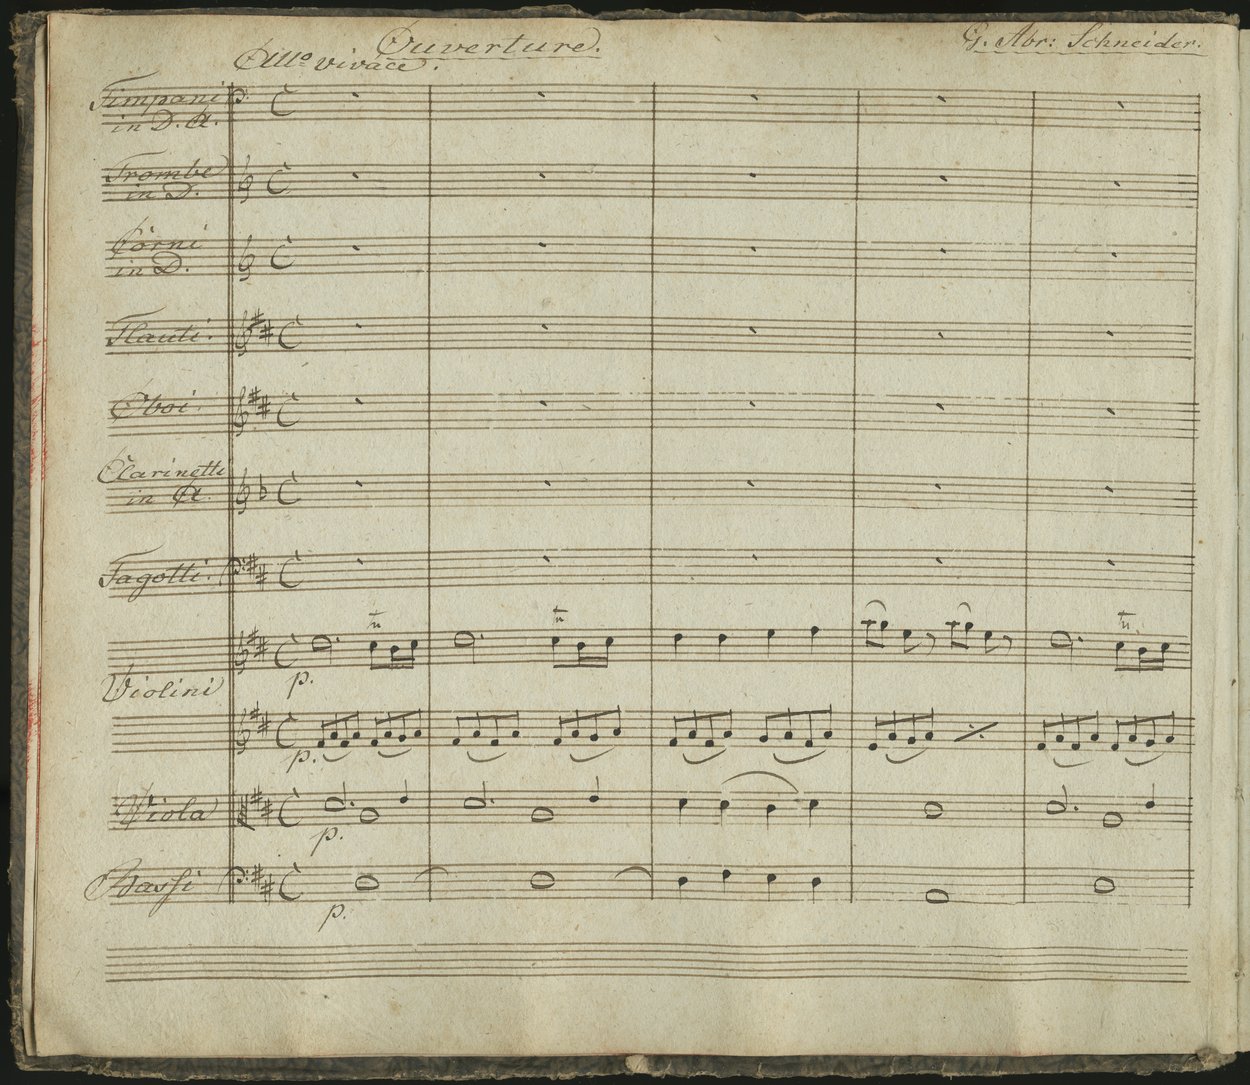 Ouverture.
G. Abr: Schneider.
Allo vivace.
Timpani
in D. A.
Trombe
in D.
Corni
in D.
Flauti.
Oboi.
Clarinetti
in A.
Fagotti.
Violini
p.
p.
Viola
p.
Bassi
p.